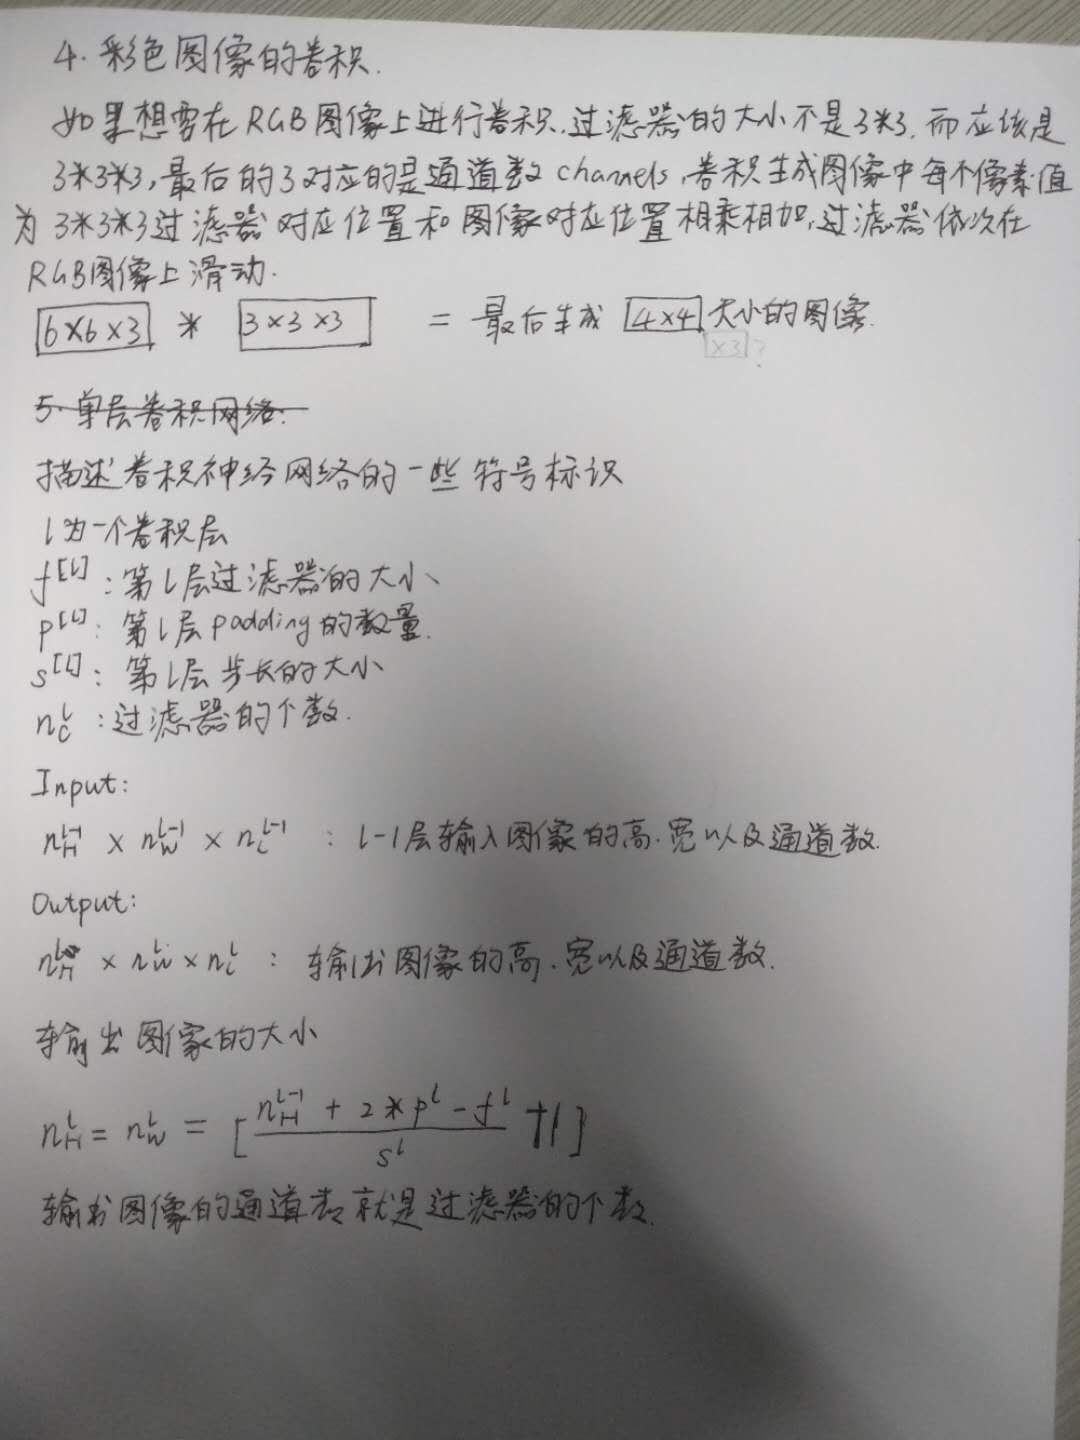 4. 彩色图像的卷积.
如果想要在RGB图像上进行卷积,过滤器的大小不是3*3,而应该是
3*3*3,最后的3对应的是通道数channels,卷积生成图像中每个像素值
为3*3*3过滤器对应位置和图像对应位置相乘相加,过滤器依次在
RGB图像上滑动.
6×6×3 * 3×3×3 = 最后生成 4×4 大小的图像.
×3?
5. 单层卷积网络:
描述卷积神经网络的一些符号标识
l为一个卷积层
f^[l]:第l层过滤器的大小、
p^[l]:第l层padding的数量.
s^[l]:第l层步长的大小
n_C^l:过滤器的个数.
Input:
n_H^{l-1} × n_W^{l-1} × n_C^{l-1} : l-1层输入图像的高.宽以及通道数.
Output:
n_H^l × n_W^l × n_C^l : 输出图像的高.宽以及通道数.
输出图像的大小
n_H^l = n_W^l = [(n_H^{l-1} + 2*p^l - f^l)/s^l + 1]
输出图像的通道数就是过滤器的个数.